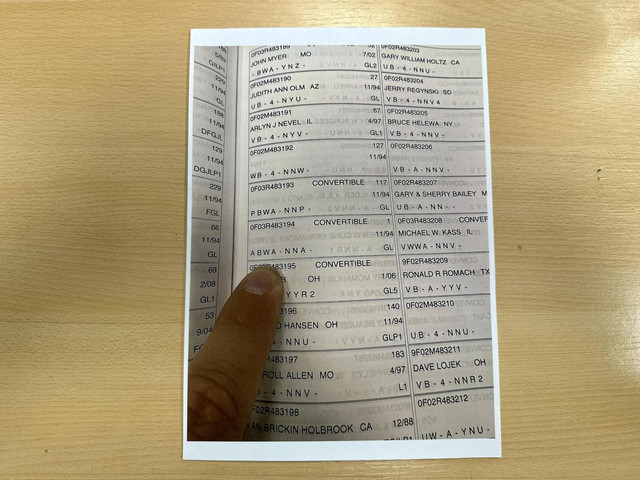 5/89
GILP1
229
11/94
GL
188
11/94
DFGJL
129
11/94
DGJLP1
229
11/94
FGL
66
11/94
GL
69
2/08
GL1
53
9/04
0F03R483189
JOHN MYER MO 7/02
- BWA - YNZ - GL2
0F02M483190 27
JUDITH ANN OLM AZ 11/94
UB - 4 - NYU - GL
0F02M483191 67
ARLYN J NEVEL IL 4/97
VB - 4 - NYV - GL1
0F02M483192 127
11/94
WB - 4 - NNW -
0F03R483193 CONVERTIBLE 117
11/94
PBWA - NNP - GL
0F03R483194 CONVERTIBLE 1
11/94
ABWA - NNA - GL
483195 CONVERTIBLE
OH 1/06
YYR2 GL5
3196 140
HANSEN OH 11/94
4 - NNU - GLP1
483197 183
ROLL ALLEN MO 4/97
- 4 - NNV - L1
483198
BRICKIN HOLBROOK CA 12/88
0F02R483203
GARY WILLIAM HOLTZ CA
UB - 4 - NNU -
0F02R483204
JERRY REGYNSKI SD
VB - 4 - NNV4
0F02R483205
BRUCE HELEWA NY
VB - 4 - NNV -
0F02R483206
VB - A - NNV -
0F02R483207
GARY & SHERRY BAILEY M
UB - A - NN - -
0F03R483208 CONVER
MICHAEL W. KASS IL
VWWA - NNV -
9F02R483209
RONALD R ROMACH TX
VB - A - YYV -
0F02M483210
UB - 4 - NNU -
9F02M483211
DAVE LOJEK OH
VB - 4 - NNR2
0F02R483212
UW - A - YNU -